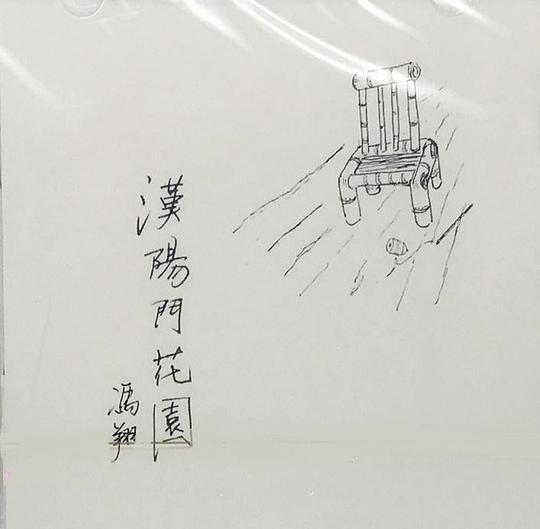 漢陽門花園
馮翔